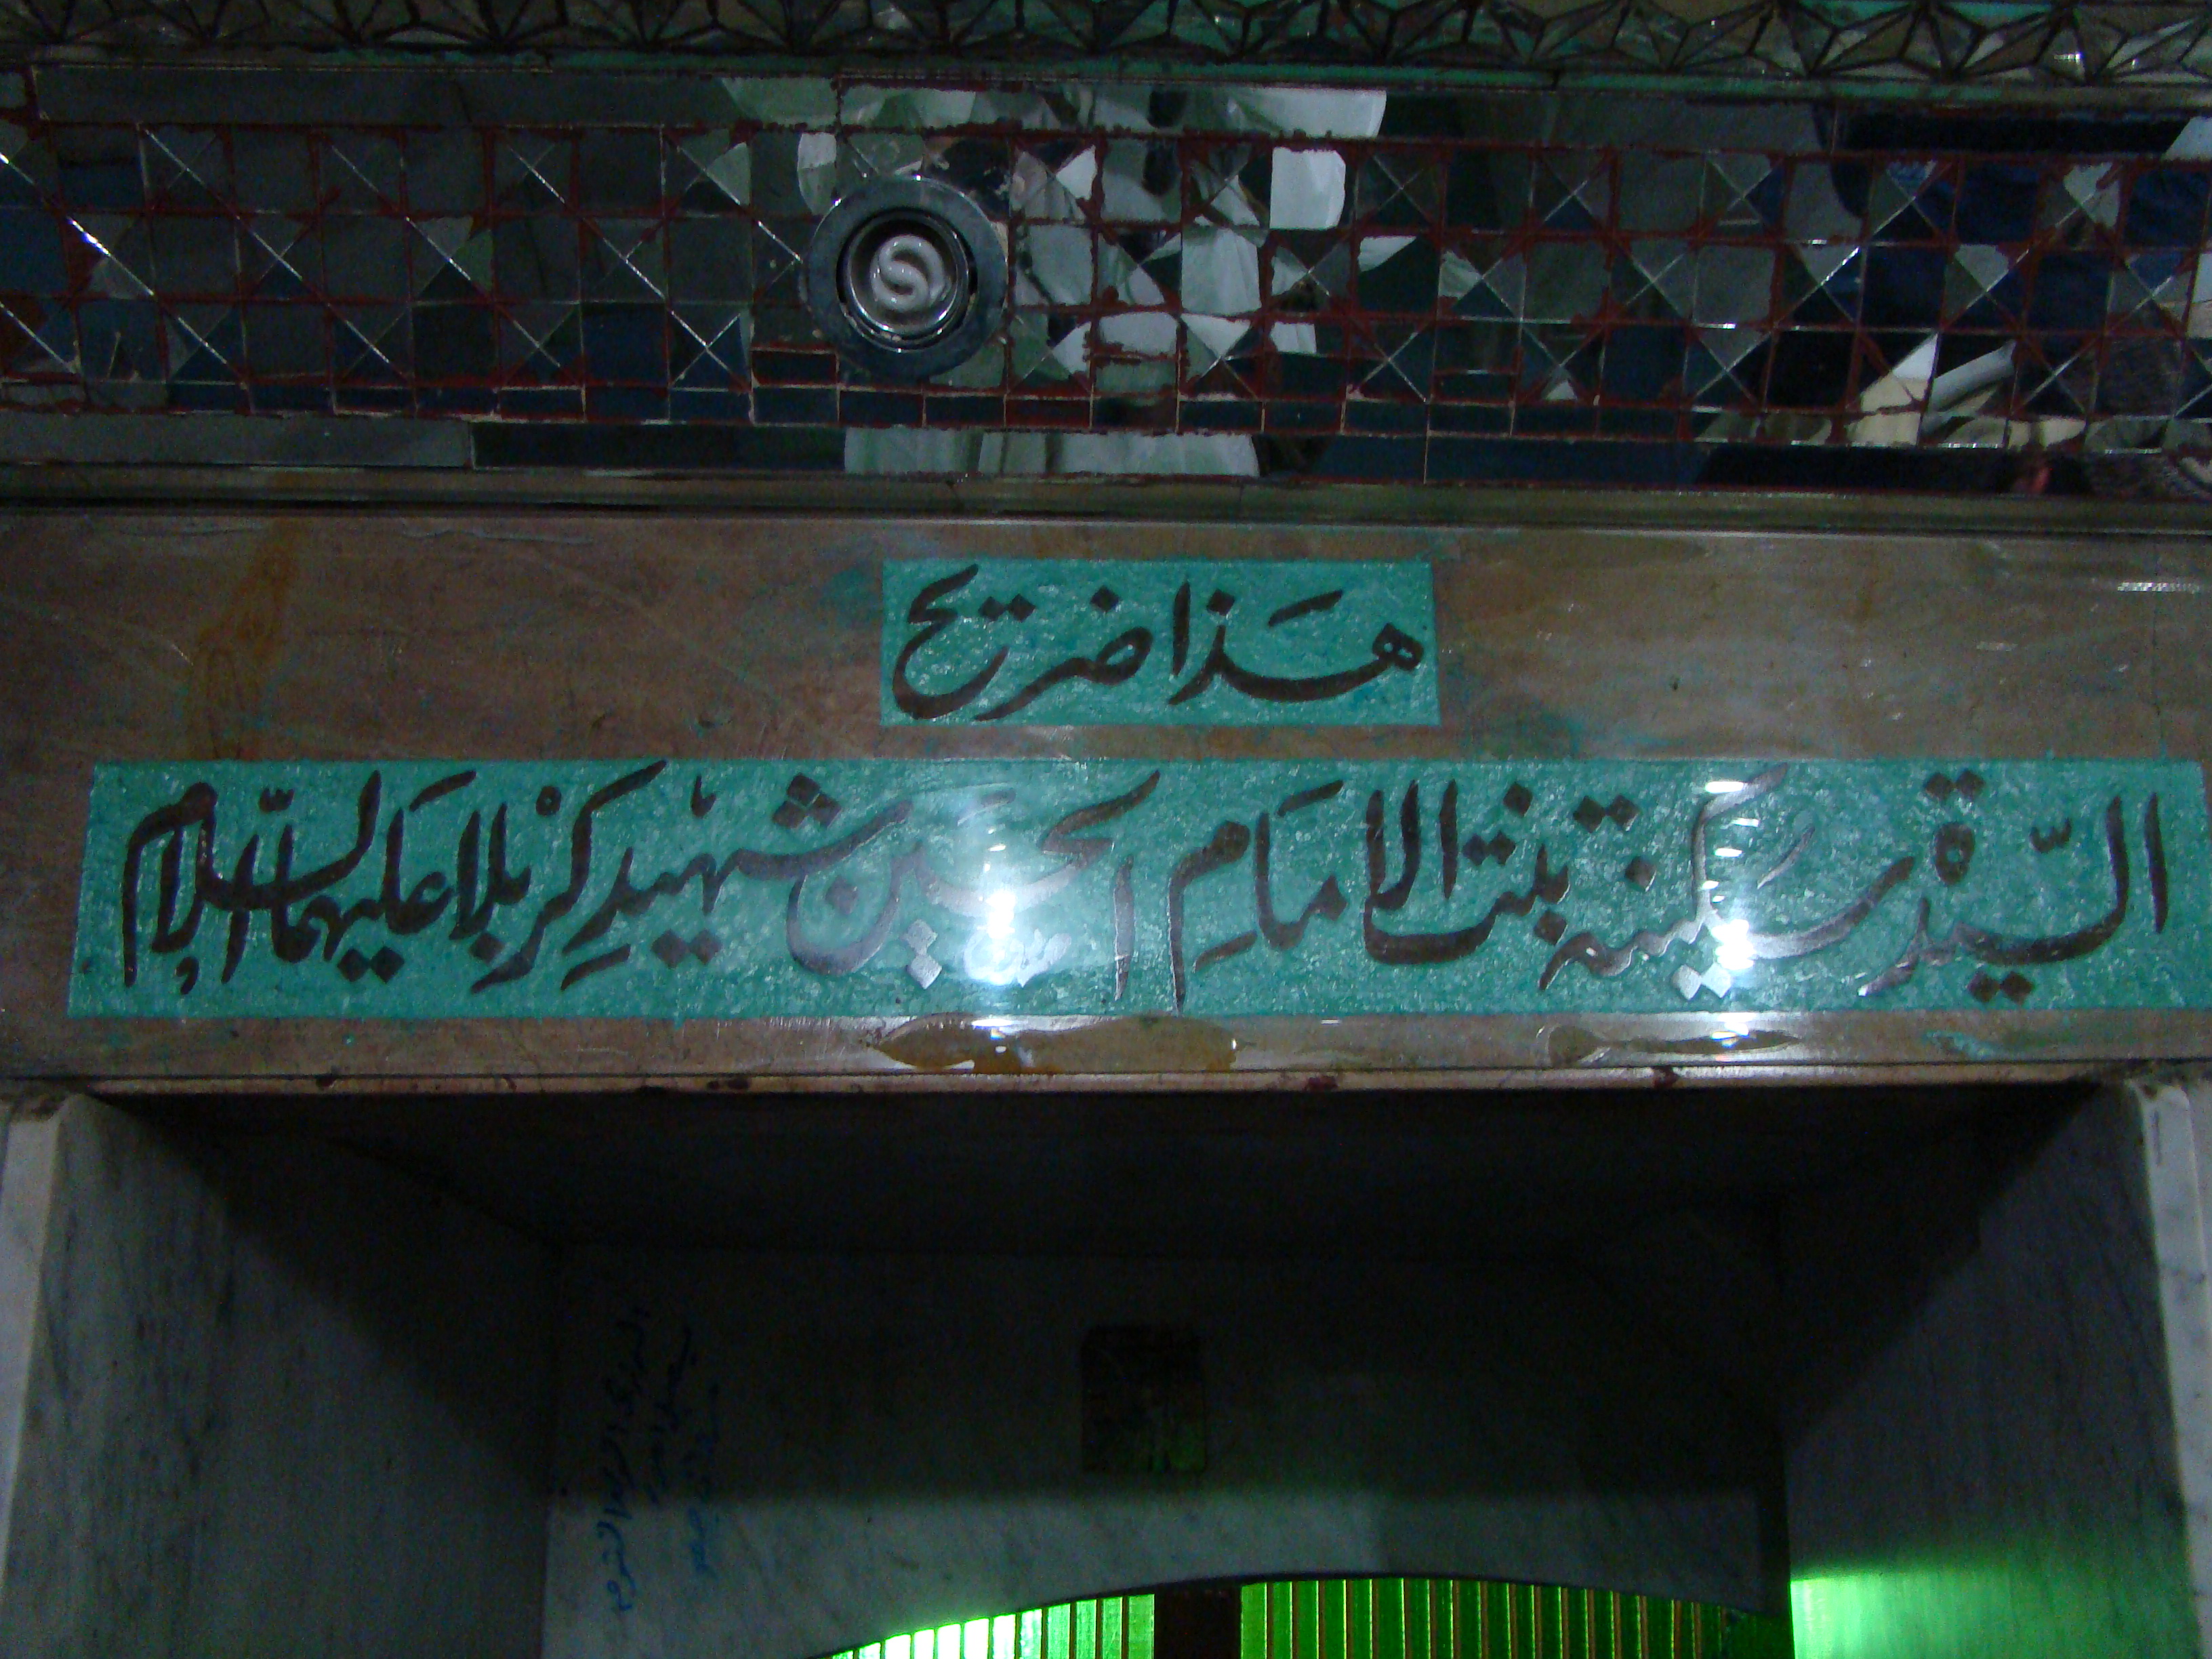 هَذا ضريح
السيّدة سَكينة بنت الامَامِ الحسَين شهيدِ كَرْبلا عَليهمَا السّلام